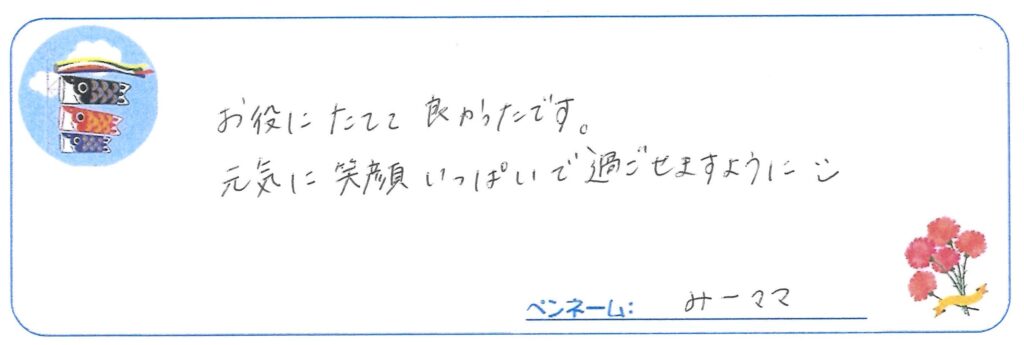 お役にたてて良かったです。
元気に笑顔いっぱいで過ごせますように
ペンネーム: みーママ